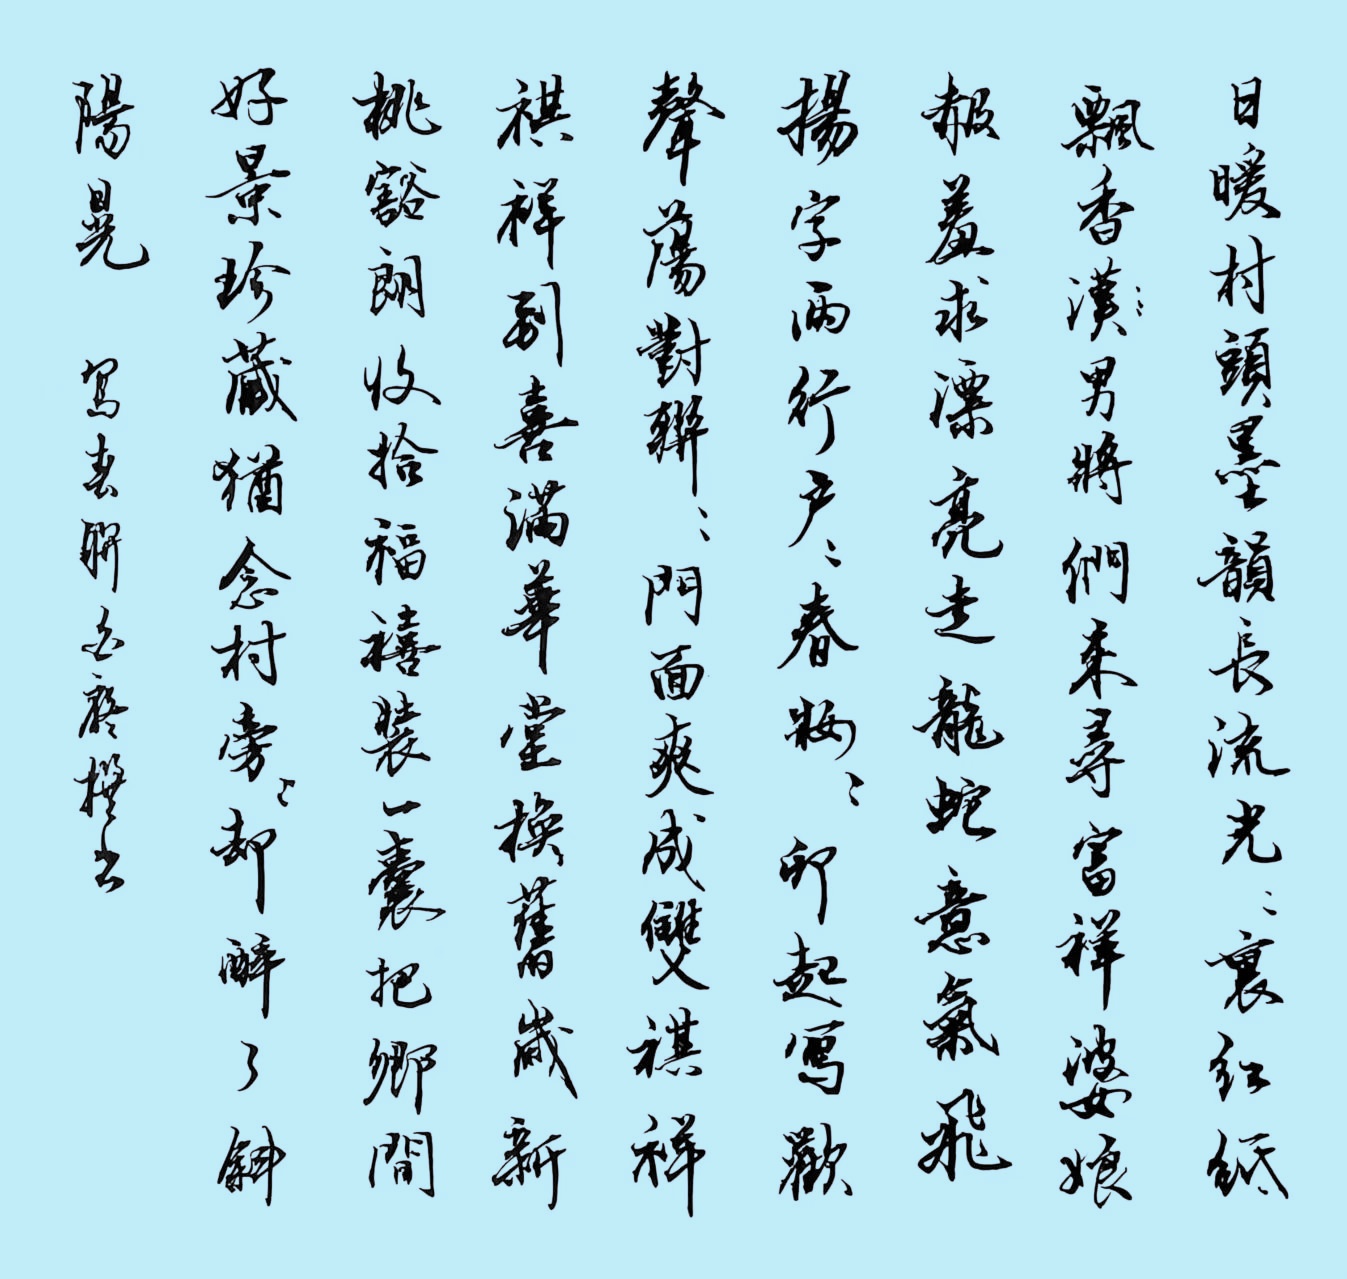 日暖村頭墨韻長流光〻裏紅紙
飄香漢〻男將們來尋富祥婆娘
報羞求漂亮走龍蛇意氣飛
揚字兩行户〻春妝〻卯起寫歡
聲蕩對聯〻門面爽成雙祺祥
祺祥到喜滿華堂換舊歲新
桃豁朗收拾福禧裝一囊把鄉間
好景珍藏猶念村旁〻却醉了斜
陽晃 寫春聯 撰書